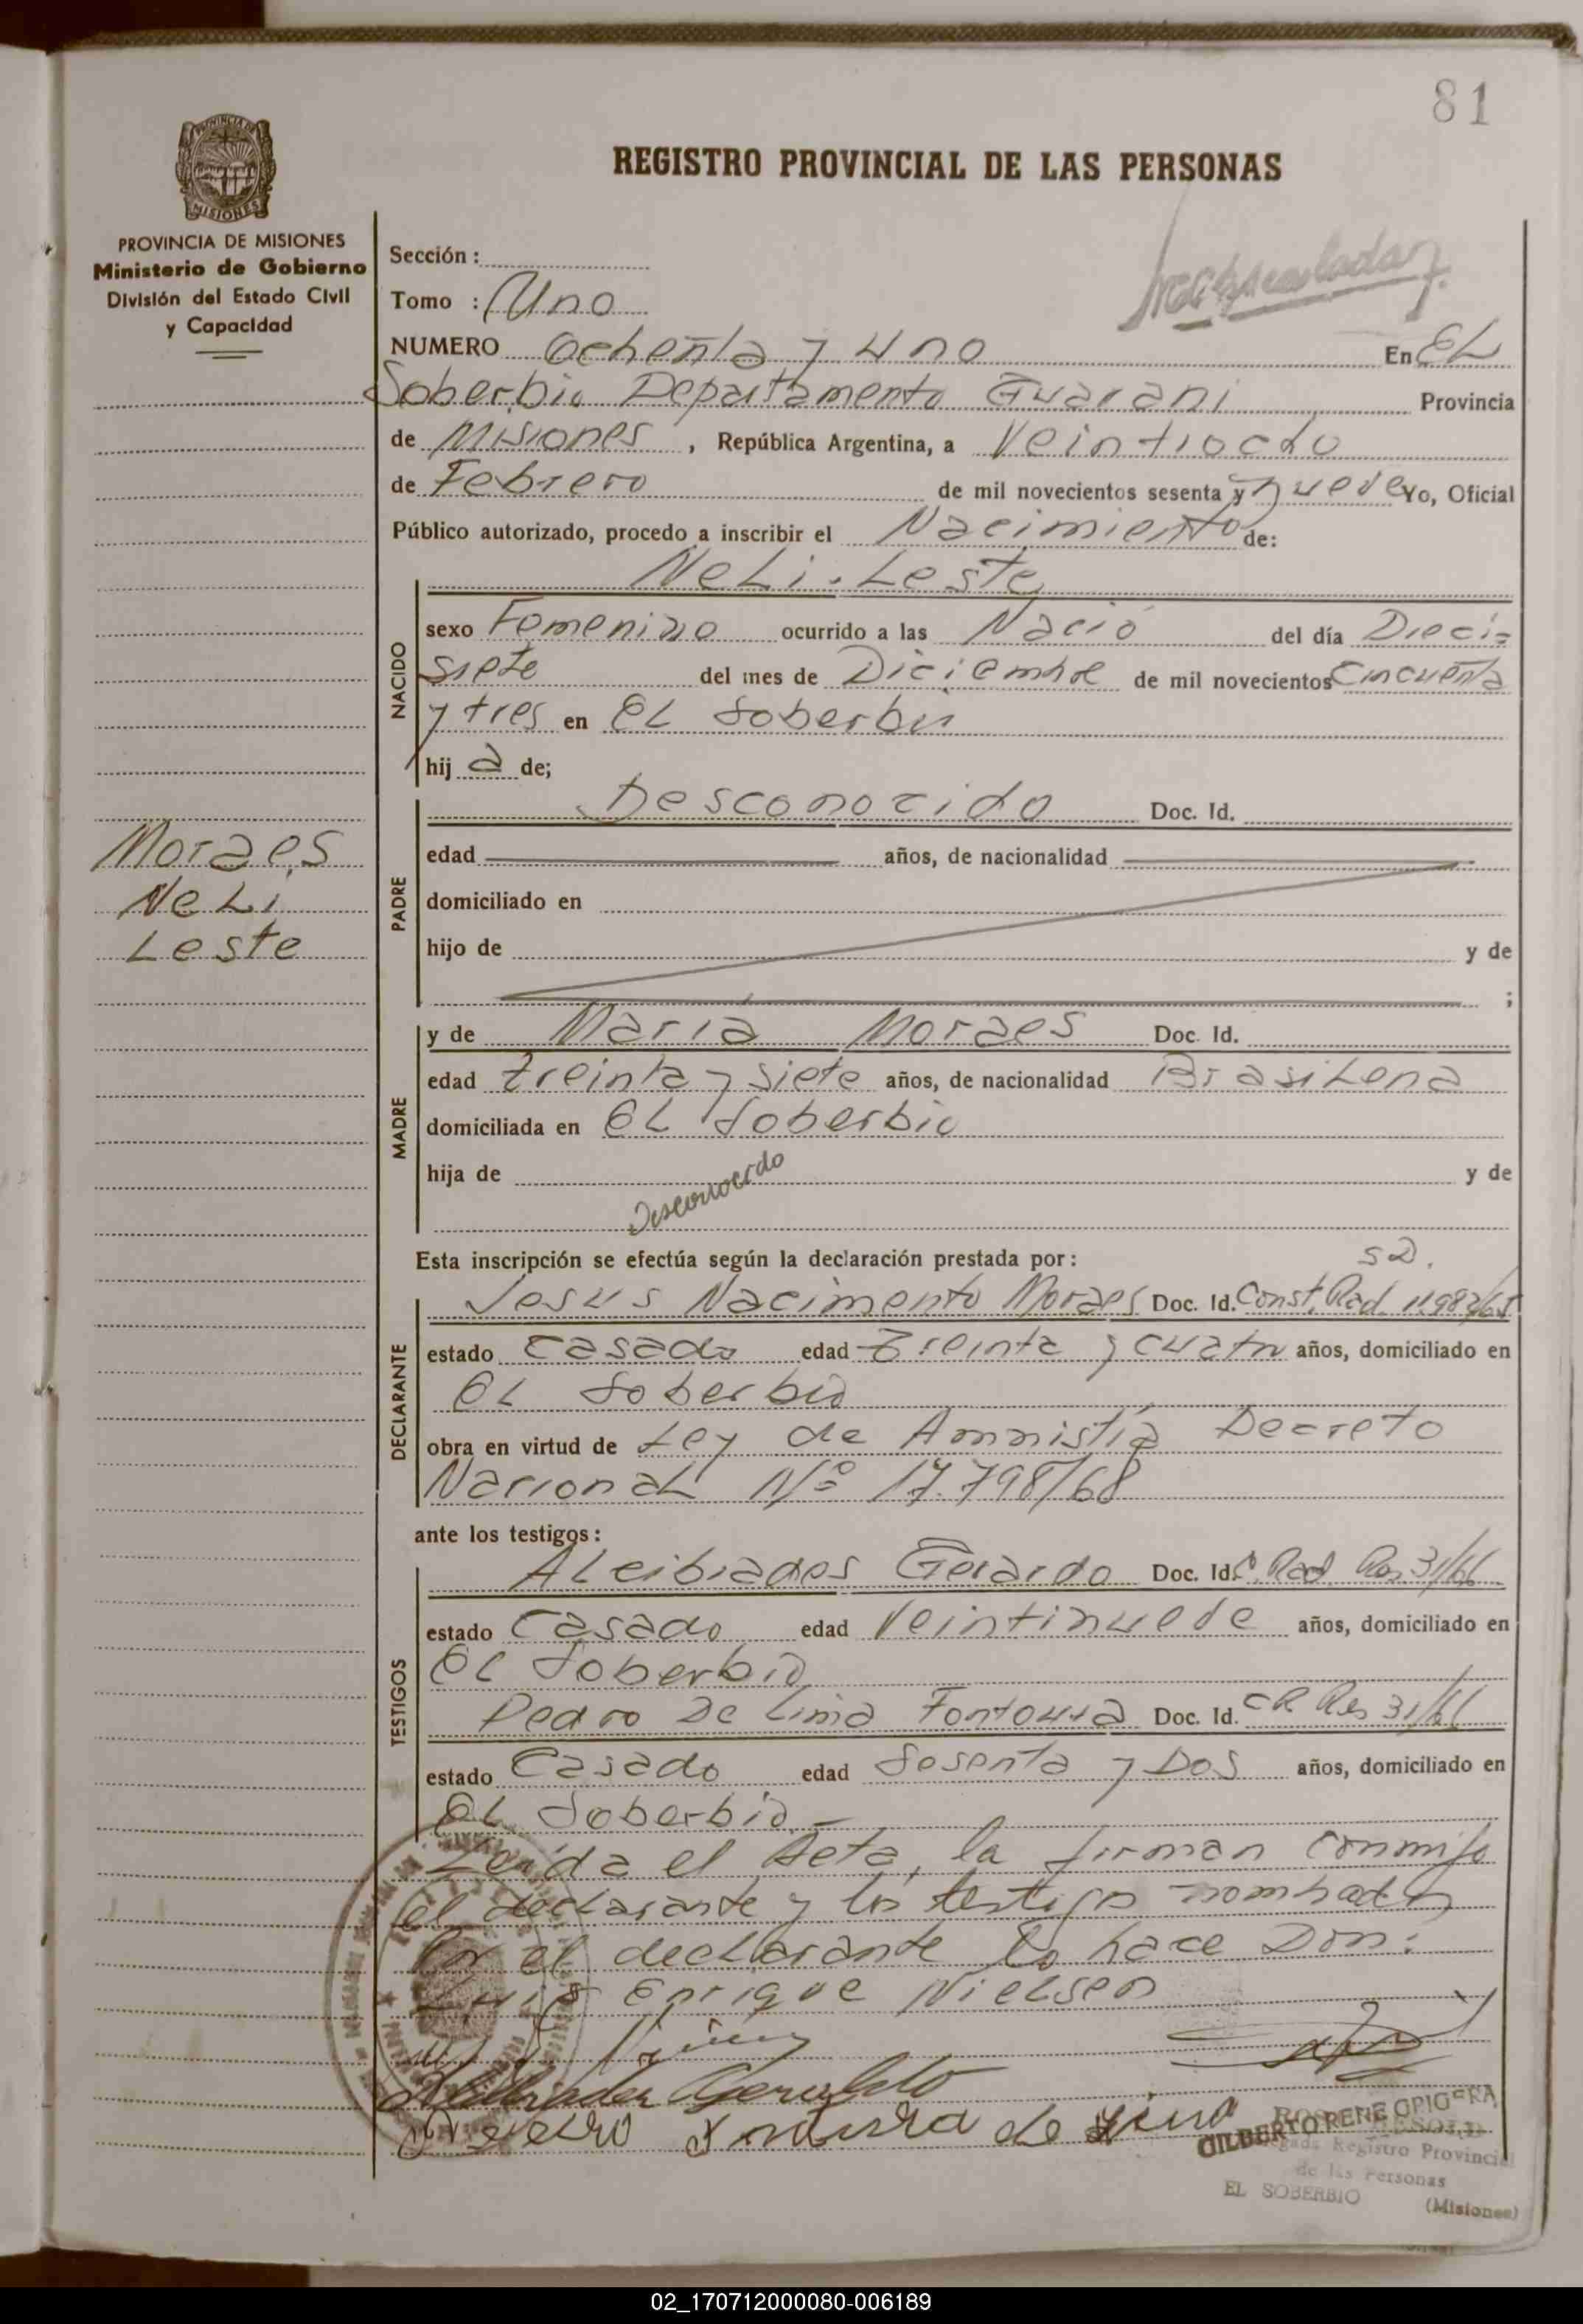 81
REGISTRO PROVINCIAL DE LAS PERSONAS
PROVINCIA DE MISIONES
Ministerio de Gobierno
División del Estado Civil
y Capacidad
Sección :
Tomo : Uno
NUMERO Ochenta y uno En EL
Soberbio Departamento Guarani Provincia
de Misiones , República Argentina, a Veintiocho
de Febrero de mil novecientos sesenta y nueve Yo, Oficial
Público autorizado, procedo a inscribir el Nacimiento de:
NeLi Leste
NACIDO
sexo Femenino ocurrido a las Nació del día Dieci=
siete del mes de Diciembre de mil novecientos cincuenta
y tres en EL Soberbio
hij a de;
Moraes
NeLi
Leste
PADRE
Desconocido Doc. Id.
edad años, de nacionalidad
domiciliado en
hijo de y de
;
MADRE
y de Maria Moraes Doc. Id.
edad treinta y siete años, de nacionalidad BrasiLena
domiciliada en EL Soberbio
hija de y de
Desconocido
Esta inscripción se efectúa según la declaración prestada por :
SD.
DECLARANTE
Jesus Nacimento Moraes Doc. Id. Const. Rad.
estado casado edad Treinta y cuatro años, domiciliado en
EL Soberbio
obra en virtud de Ley de Amnistía Decreto
NacionaL Nº 17.798/68
ante los testigos :
TESTIGOS
ALcibiades Gerardo Doc. Id. C. Rad. Res 31/66
estado casado edad Veintinueve años, domiciliado en
EL Soberbio
Pedro De Lima Fontoura Doc. Id. CR Res 31/66
estado Casado edad Sesenta y Dos años, domiciliado en
EL Soberbio.-
Leída el Acta, la firman conmigo
el declarante y los testigos nombrados
Por el declarante lo hace Don:
Luis Enrique Nielsen
Pedro Fontoura de Lima
GILBERTO RENE
Registro Provincial
de las Personas
EL SOBERBIO (Misiones)
02_170712000080-006189